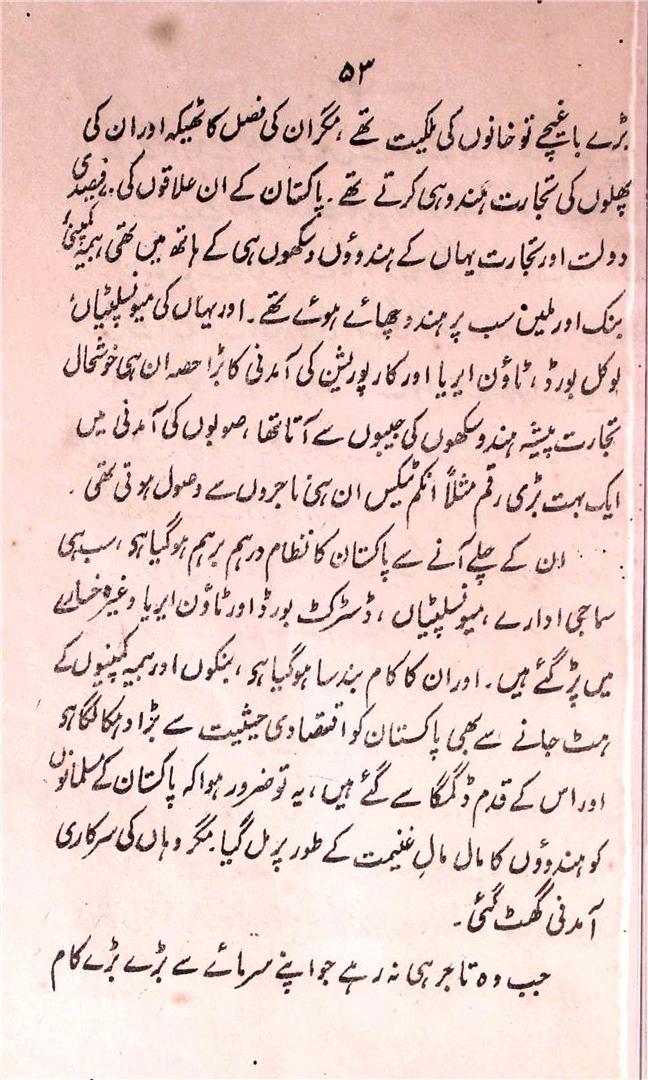 ۵۳
بڑے باغیچے تو خانوں کی ملکیت تھے، مگر ان کی فصل کا ٹھیکہ اور ان کی
پھلوں کی تجارت ہندو ہی کرتے تھے۔ پاکستان کے ان علاقوں کی فیصدی
دولت اور تجارت یہاں کے ہندوؤں و سکھوں ہی کے ہاتھ میں تھی بیمہ کمپنی
بنک اور ملیں سب پر ہندو چھائے ہوئے تھے۔ اور یہاں کی میونسپلٹیاں
لوکل بورڈ، ٹاؤن ایریا اور کارپوریشن کی آمدنی کا بڑا حصہ ان ہی خوشحال
تجارت پیشہ ہندو سکھوں کی جیبوں سے آتا تھا، صوبوں کی آمدنی میں
ایک بہت بڑی رقم مثلاً انکم ٹیکس ان ہی تاجروں سے وصول ہوتی تھی۔
ان کے چلے آنے سے پاکستان کا نظام درہم برہم ہوگیا ہی، سب ہی
سماجی ادارے، میونسپلٹیاں، ڈسٹرکٹ بورڈ اور ٹاؤن ایریا وغیرہ خسارے
میں پڑ گئے ہیں۔ اور ان کا کام بند سا ہوگیا ہی، بنکوں اور بیمہ کمپنیوں کے
ہٹ جانے سے بھی پاکستان کو اقتصادی حیثیت سے بڑا دھکا لگا ہی
اور اس کے قدم ڈگمگا سے گئے ہیں، یہ تو ضرور ہوا کہ پاکستان کے مسلمانوں
کو ہندوؤں کا مال مالِ غنیمت کے طور پر مل گیا۔ مگر وہاں کی سرکاری
آمدنی گھٹ گئی۔
جب وہ تاجر ہی نہ رہے جو اپنے سرمائے سے بڑے بڑے کام